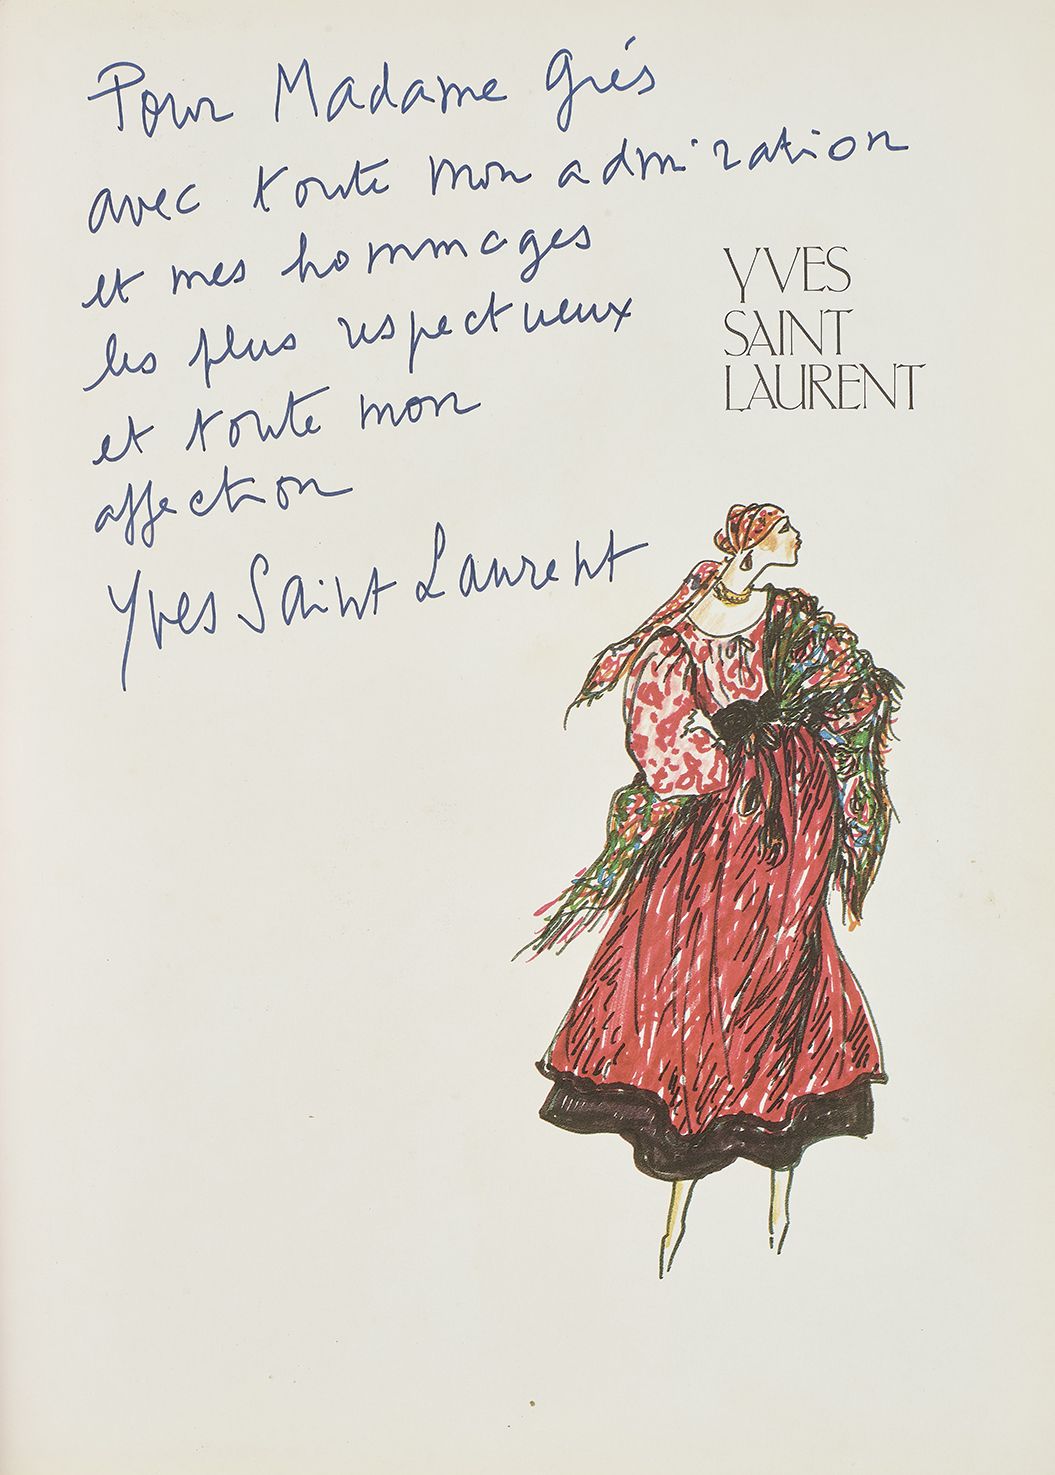 Pour Madame Grés
avec toute mon admiration
et mes hommages
les plus respectueux
et toute mon
affection
Yves Saint Laurent
YVES
SAINT
LAURENT